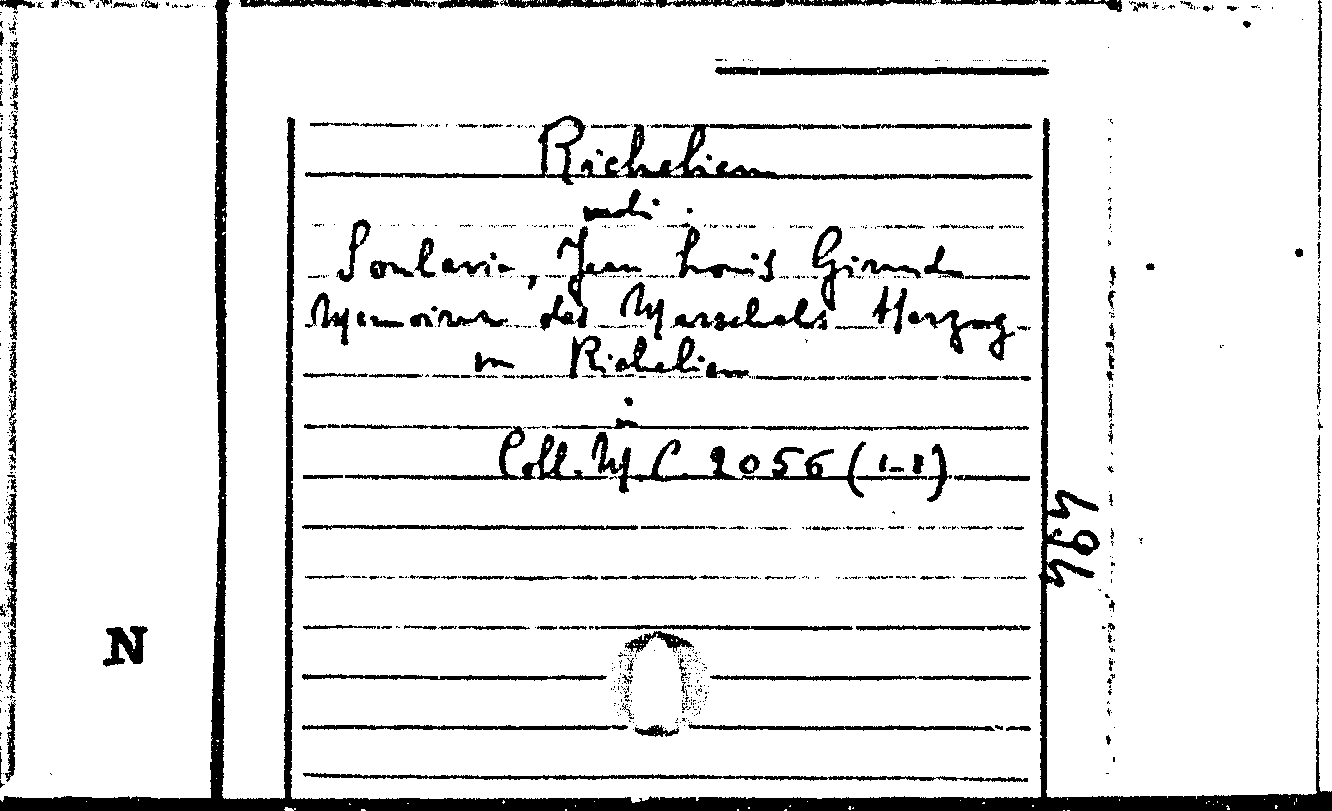 Richelieu
vide:
Soulavie, Jean Louis Giraud
Memoiren des Marschals Herzog
v. Richelieu
in
Coll. M C 2056 (1-8)
494
N